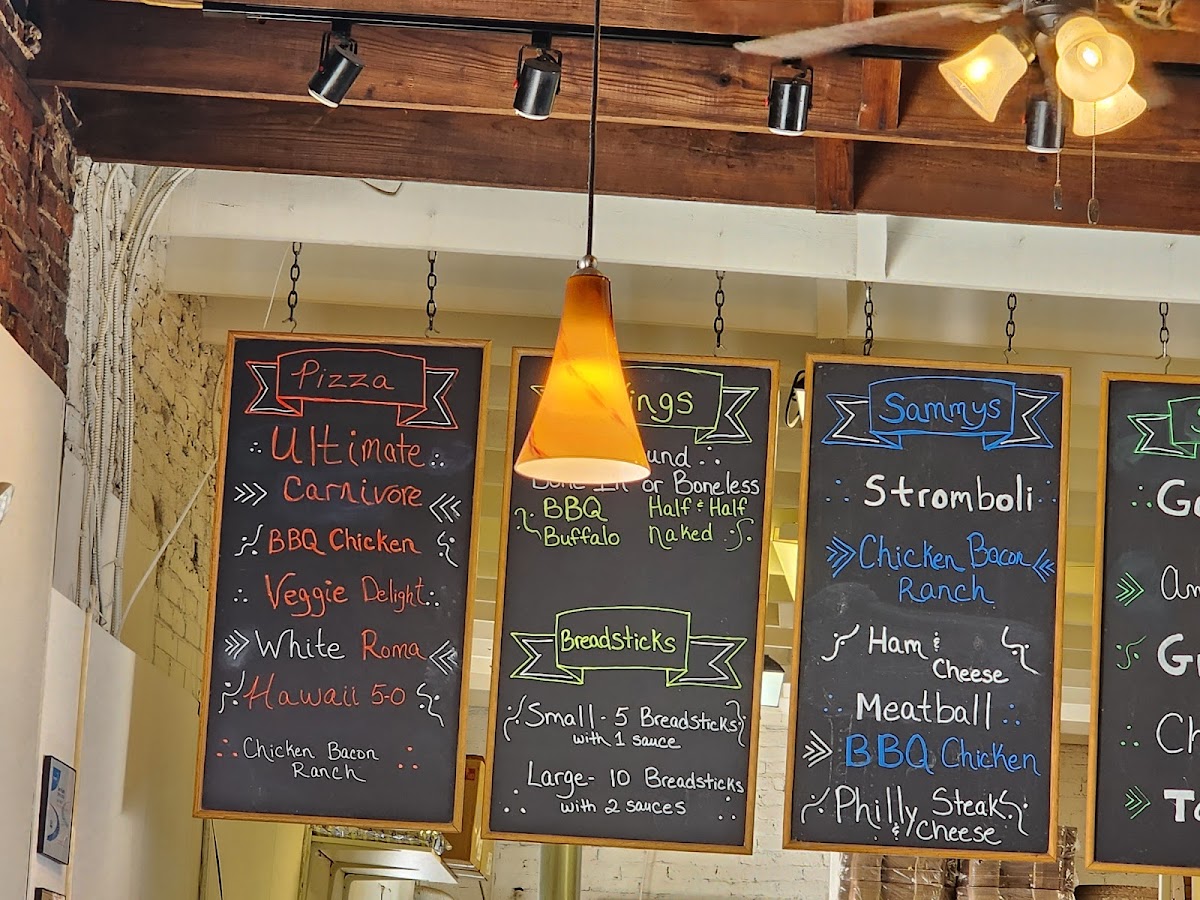 Pizza
Ultimate
Carnivore
BBQ Chicken
Veggie Delight
White Roma
Hawaii 5-0
Chicken Bacon
Ranch
or Boneless
BBQ Half & Half
Buffalo Naked
Breadsticks
Small - 5 Breadsticks
with 1 sauce
Large - 10 Breadsticks
with 2 sauces
Sammys
Stromboli
Chicken Bacon
Ranch
Ham &
Cheese
Meatball
BBQ Chicken
Philly Steak
& Cheese